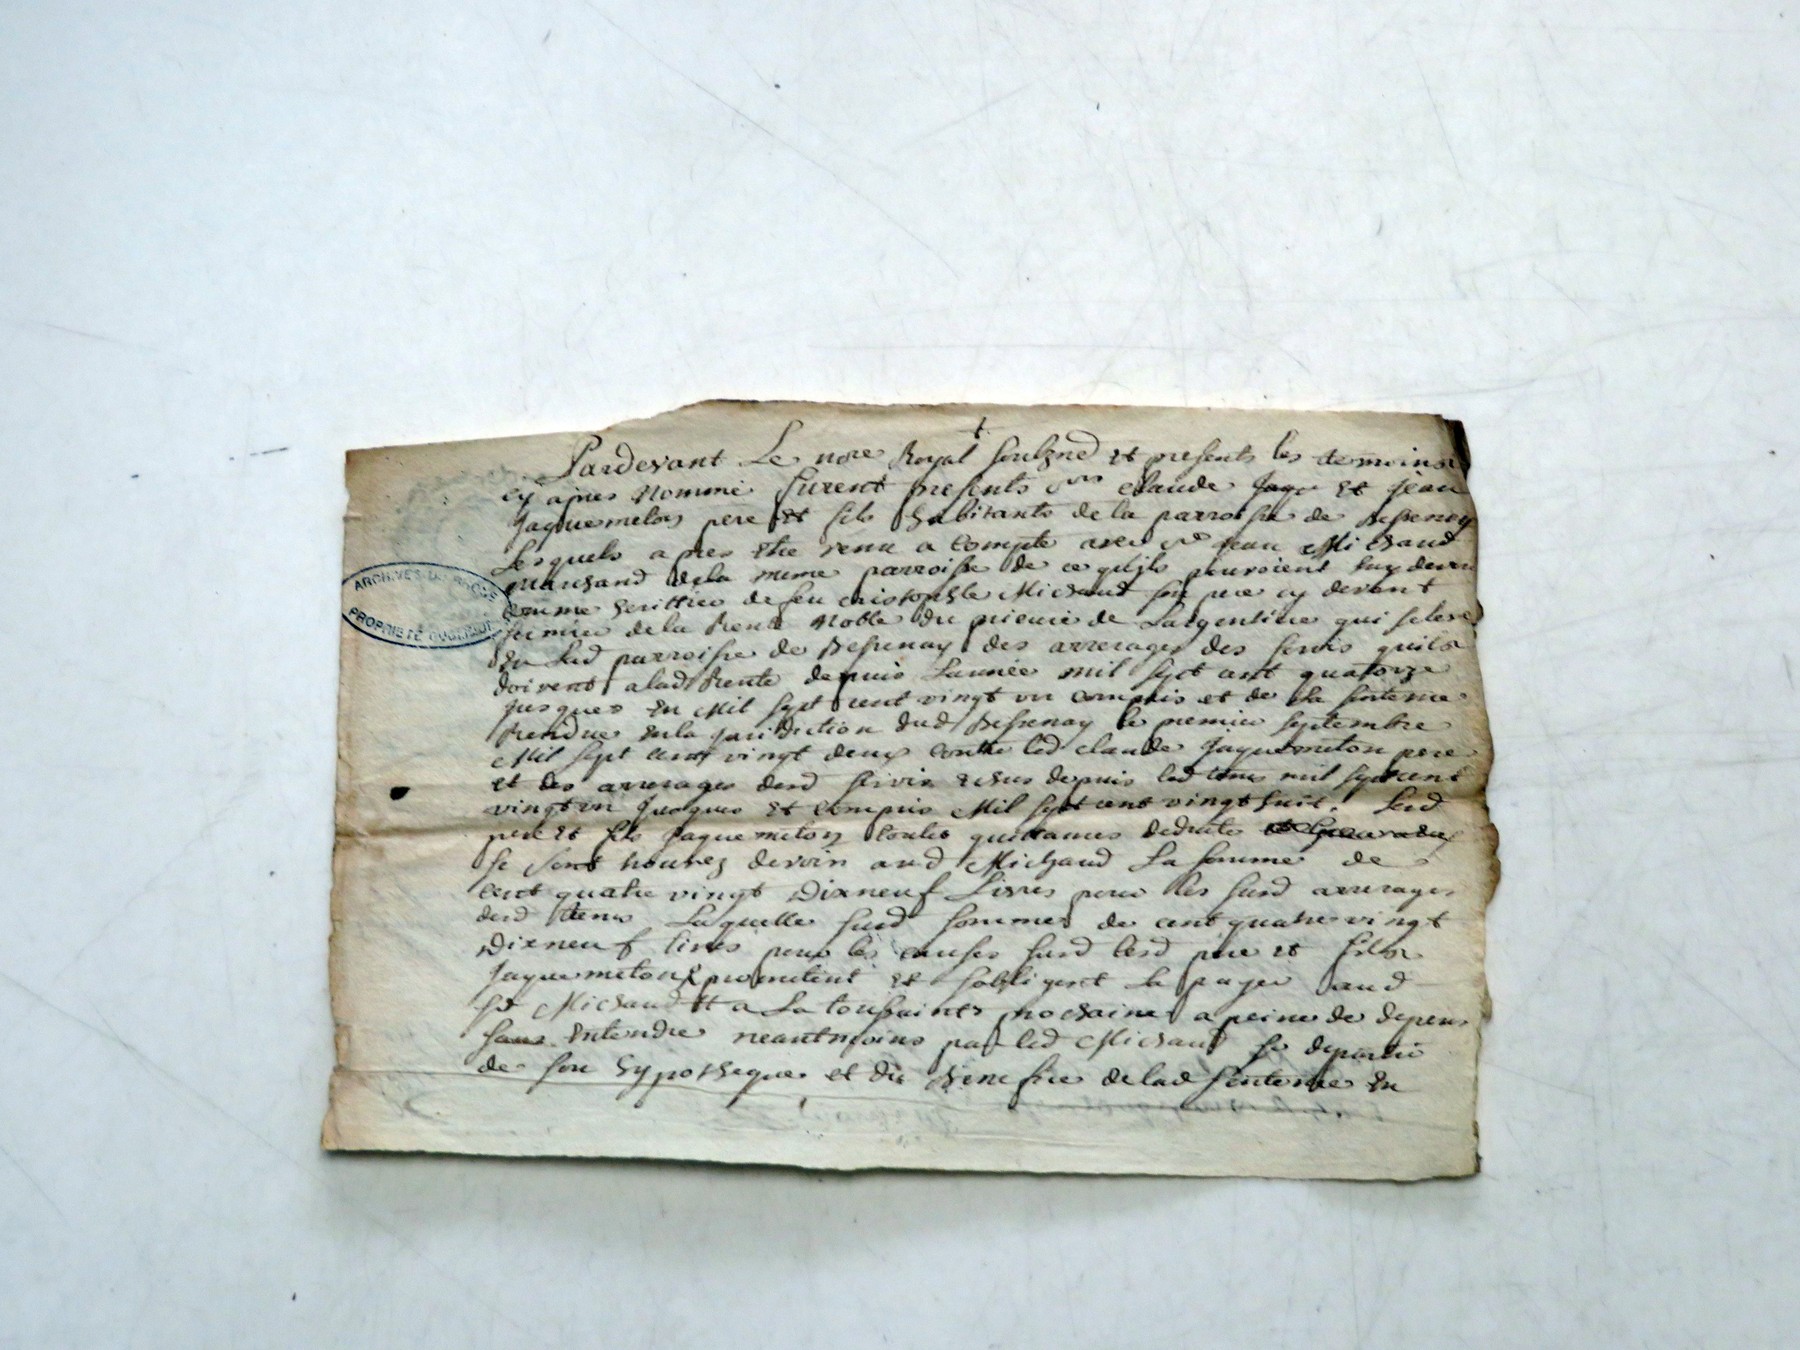 Pardevant Le nore Royal soubzné et presents les temoins
cy apres nommé furent presents Claude Jaque et Jean
Jaquemeton pere et fils habitants de la parroisse de Bessenay
Lesquels apres etre venu a compte avec Jean Michaud
marchand dela meme parroisse de ce quils pouvoient luy devoir
comme herittier de feu Cristophle Michaud son pere cy devant
fermier de la Rente Noble du prieuré de Largentiere qui se leve
En Lad parroisse de Bessenay des arrerages des servis quils
doivent alad Rente depuis Lannée mil sept cent quatorze
jusques En Mil sept cent vingt un compris et de la sentence
Rendue En la juridiction dud Bessenay le premier septembre
Mil sept cent vingt deux contre led Claude Jaquemeton pere
et des arrerages desd servis Echus depuis led tems mil sept cent
vingt un jusques Et compris Mil sept cent vingt huit. Lesd
pere et fils Jaquemeton toutes quittances deduites
se sont trouvez devoir aud Michaud La somme de
cent quatre vingt Dixneuf Livres pour les susd arrerages
desd tems Laquelle susd somme de cent quatre vingt
Dixneuf livres pour les causes susd lesd pere et fils
Jaquemeton promettent et sobligent la payer aud
sr Michaud a La toussaints prochaine a peine de depens
sans Entendre neantmoins par led Michaud se departir
de son hypotheque et du Benefice de lad sentence En
ARCHIVES DU RHONE
PROPRIETE PUBLIQUE